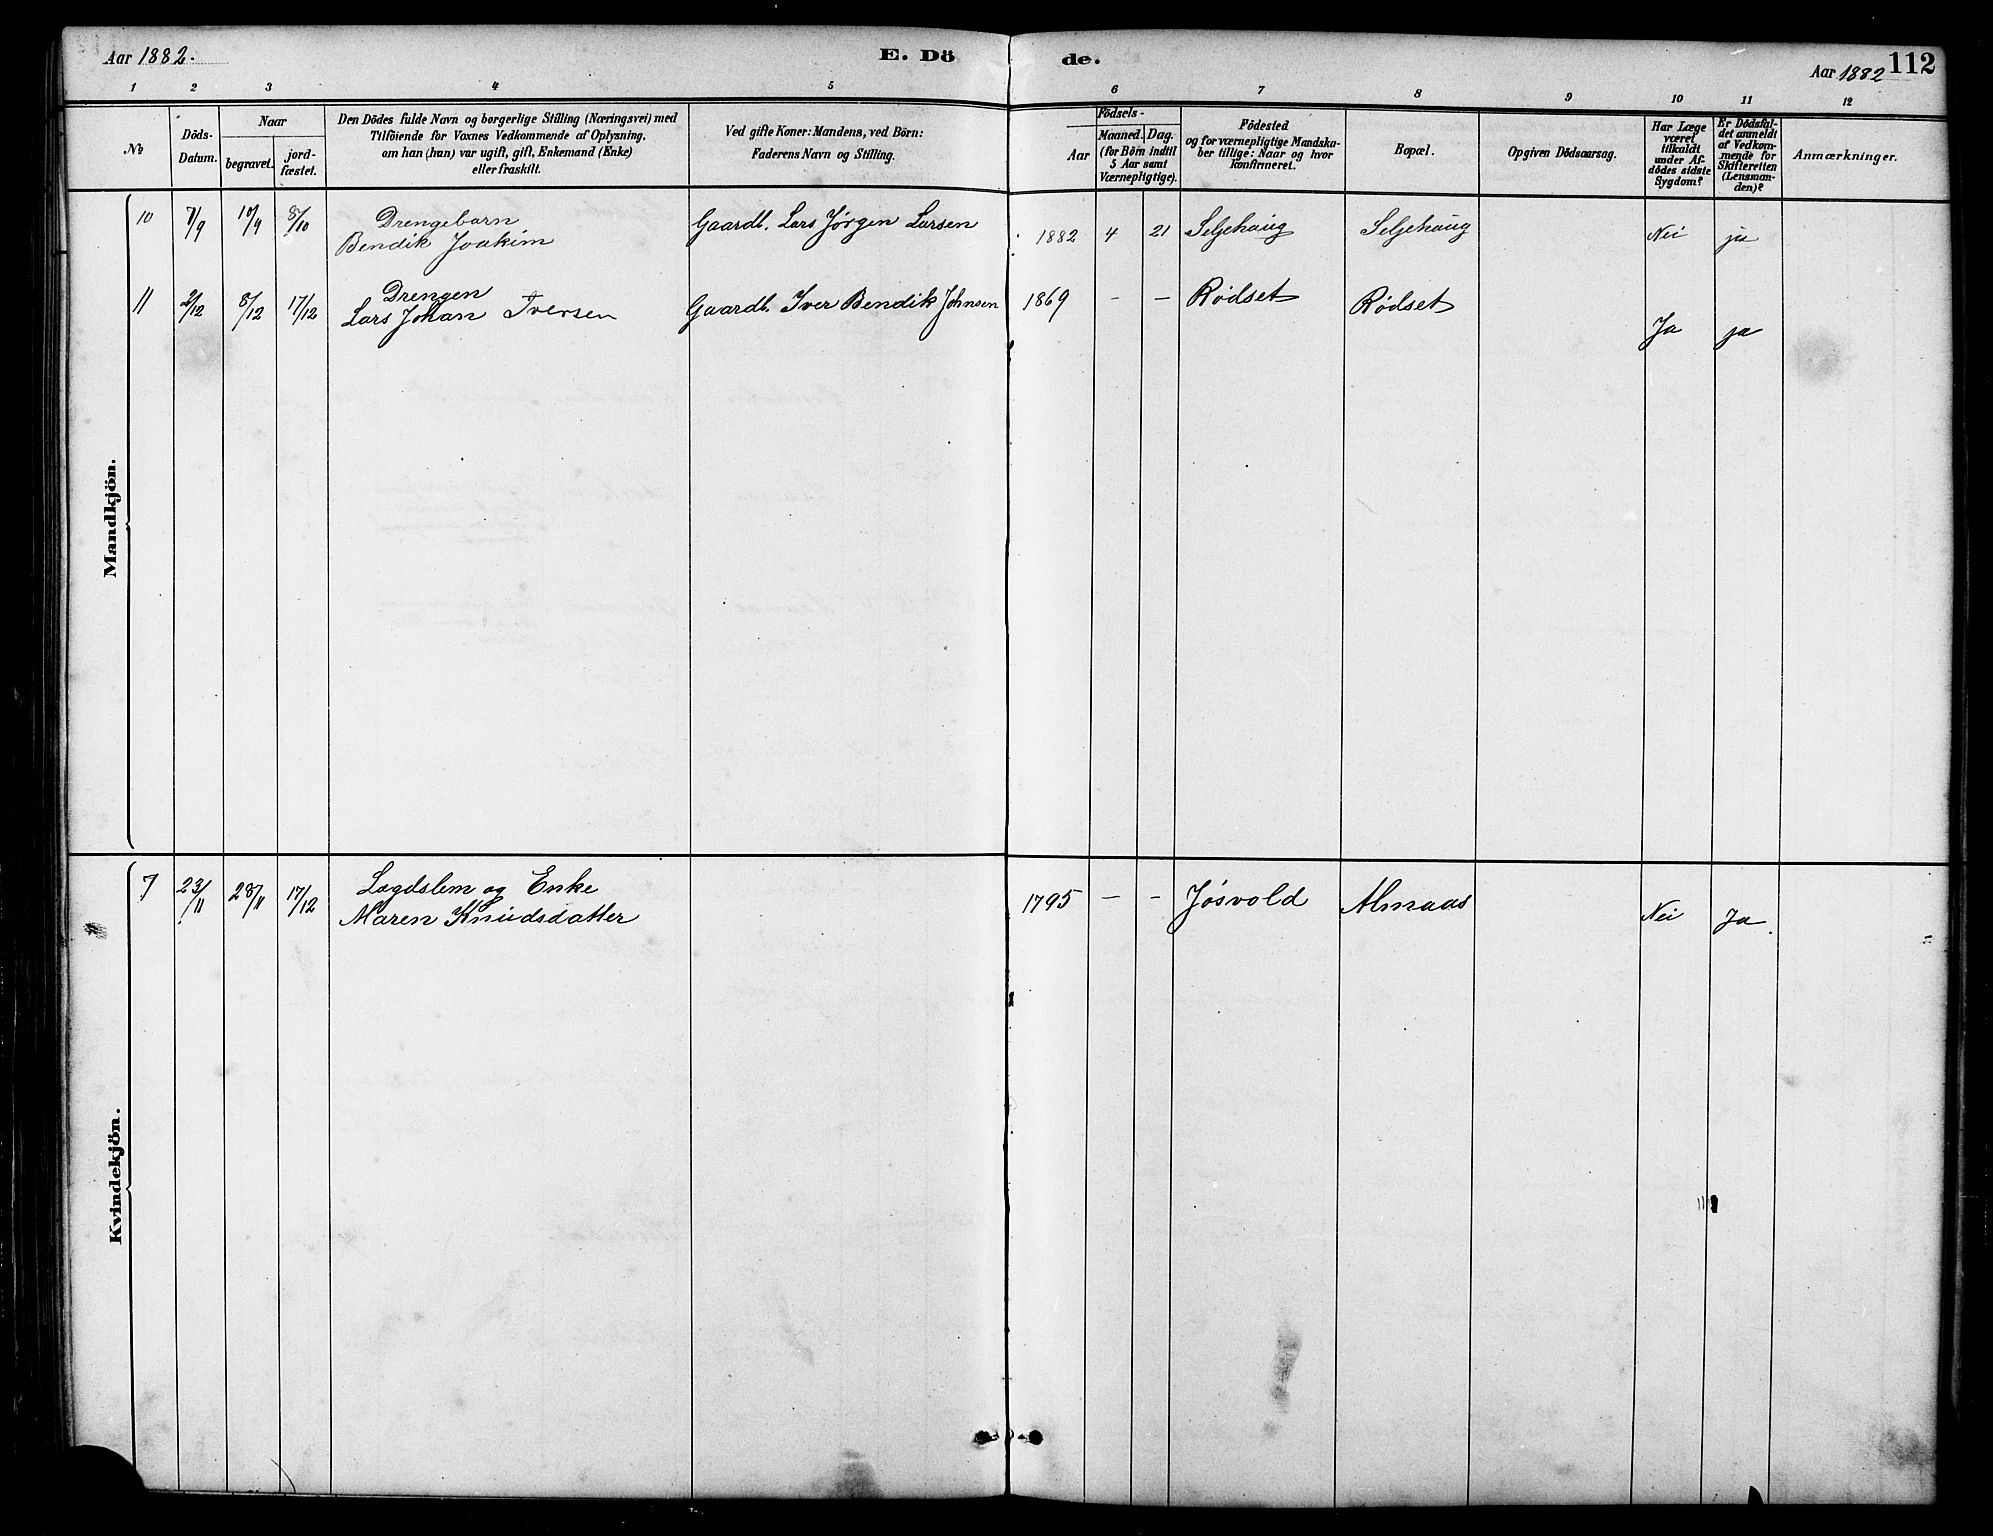 Aar 1882.
E. Dö
de.
Aar 1882
112
1 2 3 4 5 6 7 8 9 10 11 12
№
Döds-
Datum.
Naar
begravet.
jord-
fæstet.
Den Dödes fulde Navn og borgerlige Stilling (Næringsvei) med
Tilföiende for Voxnes Vedkommende af Oplysning,
om han (hun) var ugift, gift, Enkemand (Enke)
eller fraskilt.
Ved gifte Koner: Mandens, ved Börn:
Faderens Navn og Stilling.
Födsels-
Aar
Maaned. Dag.
(for Börn indtil
5 Aar samt
Værnepligtige).
Födested
og for værnepligtige Mandska-
ber tillige: Naar og hvor
konfirmeret.
Bopæl.
Opgiven Dödsaarsag.
Har Læge
været
tilkaldt
under Af-
dödes sidste
Sygdom?
Er Dödsfal-
det anmeldt
af Vedkom-
mende for
Skifteretten
(Lensman-
den)?
Anmærkninger.
Mandkjön.
10 7/9 10/9 8/10 Drengebarn
Bendik Joakim
Gaardb. Lars Jørgen Larsen 1882 4 21 Seljehaug Seljehaug Nei ja
11 2/12 8/12 17/12 Drengen
Lars Johan Iversen
Gaardb. Iver Bendik Johnsen 1869 - - Rødset Rødset Ja ja
Kvindekjön.
7 23/11 28/11 17/12 Lægdslem og Enke
Maren Knudsdatter
1795 - - Jøsvold Almaas Nei Ja.